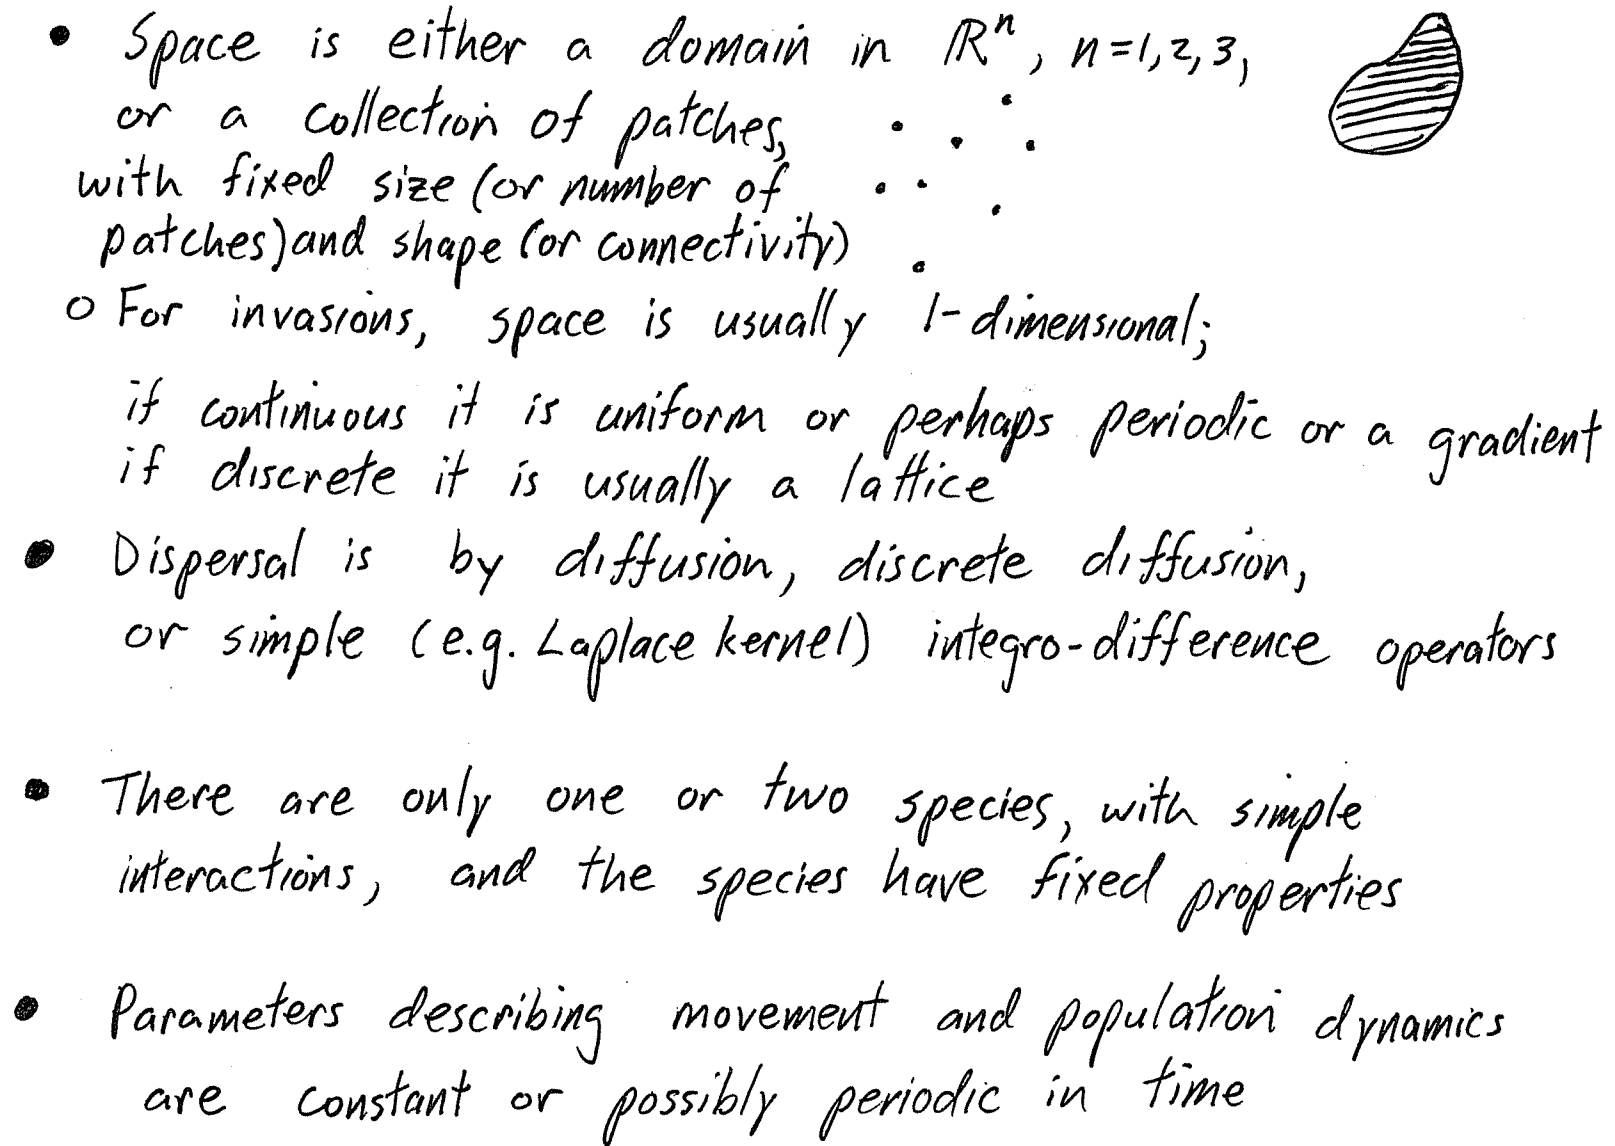 • Space is either a domain in ℝⁿ, n=1,2,3,
or a collection of patches,
with fixed size (or number of
patches) and shape (or connectivity)
o For invasions, space is usually 1-dimensional;
if continuous it is uniform or perhaps periodic or a gradient
if discrete it is usually a lattice
• Dispersal is by diffusion, discrete diffusion,
or simple (e.g. Laplace kernel) integro-difference operators
• There are only one or two species, with simple
interactions, and the species have fixed properties
• Parameters describing movement and population dynamics
are constant or possibly periodic in time